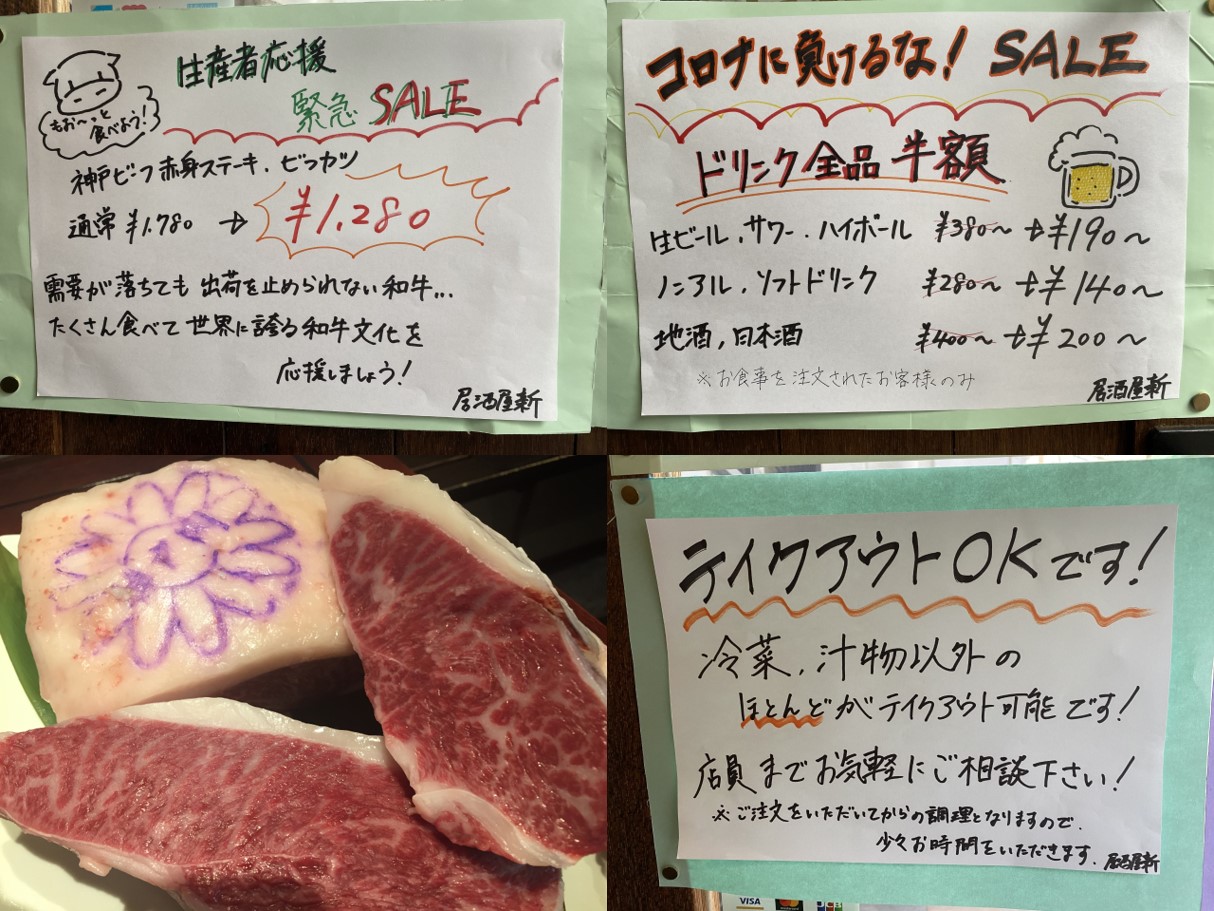 生産者応援
緊急 SALE
もお〜っと
食べよう!
神戸ビーフ赤身ステーキ、ビフカツ
通常 ¥1,780 → ¥1,280
需要が落ちても出荷を止められない和牛...
たくさん食べて世界に誇る和牛文化を
応援しましょう!
居酒屋新
コロナに負けるな! SALE
ドリンク全品半額
生ビール、サワー、ハイボール ¥380〜 → ¥190〜
ノンアル、ソフトドリンク ¥280〜 → ¥140〜
地酒,日本酒 ¥400〜 → ¥200〜
※お食事を注文されたお客様のみ
居酒屋新
テイクアウトOKです!
冷菜、汁物以外の
ほとんどがテイクアウト可能です!
店員までお気軽にご相談下さい!
※ご注文をいただいてからの調理となりますので、
少々お時間をいただきます。居酒屋新
VISA